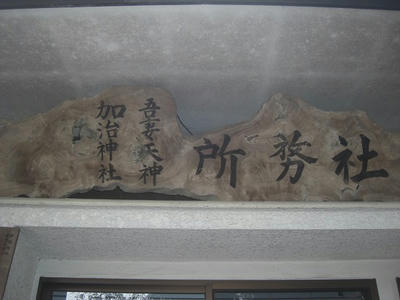 社務所
吾妻天神
加治神社